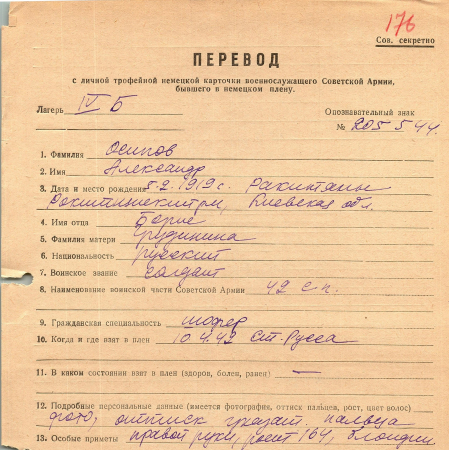 176
Сов. секретно
ПЕРЕВОД
с личной трофейной немецкой карточки военнослужащего Советской Армии,
бывшего в немецком плену.
Лагерь IV Б
Опознавательный знак
№ 205544.
1. Фамилия Осипов
2. Имя Александр
3. Дата и место рождения 5-2-1919 с. Ракитаны
Киевская обл.
4. Имя отца Борис
5. Фамилия матери Грудинина
6. Национальность русский
7. Воинское звание солдат
8. Наименование воинской части Советской Армии 42 с.п.
9. Гражданская специальность шофер
10. Когда и где взят в плен 10.4.42 Ст. Русса
11. В каком состоянии взят в плен (здоров, болен, ранен) —
12. Подробные персональные данные (имеется фотография, оттиск пальцев, рост, цвет волос)
фото, оттиск указат. пальца
13. Особые приметы правой руки, рост 164, блондин